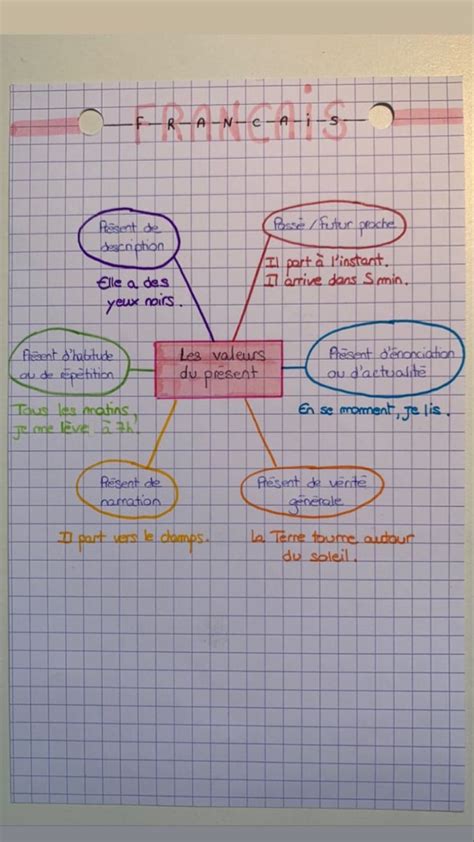 FRANCAIS
F-R-A-N-C-A-i-S
Présent de
description
Elle a des
yeux noirs.
Passé / Futur proche
Il part à l'instant.
Il arrive dans 5 min.
Présent d'habitude
ou de épétition
Tous les matins,
je me lève à 7h
Les valeurs
du présent
Présent d'énonciation
ou d'actualité
En se moment, je lis.
Présent de
narration
Il part vers le champs.
Présent de vérité
générale
La Terre tourne autour
du soleil.